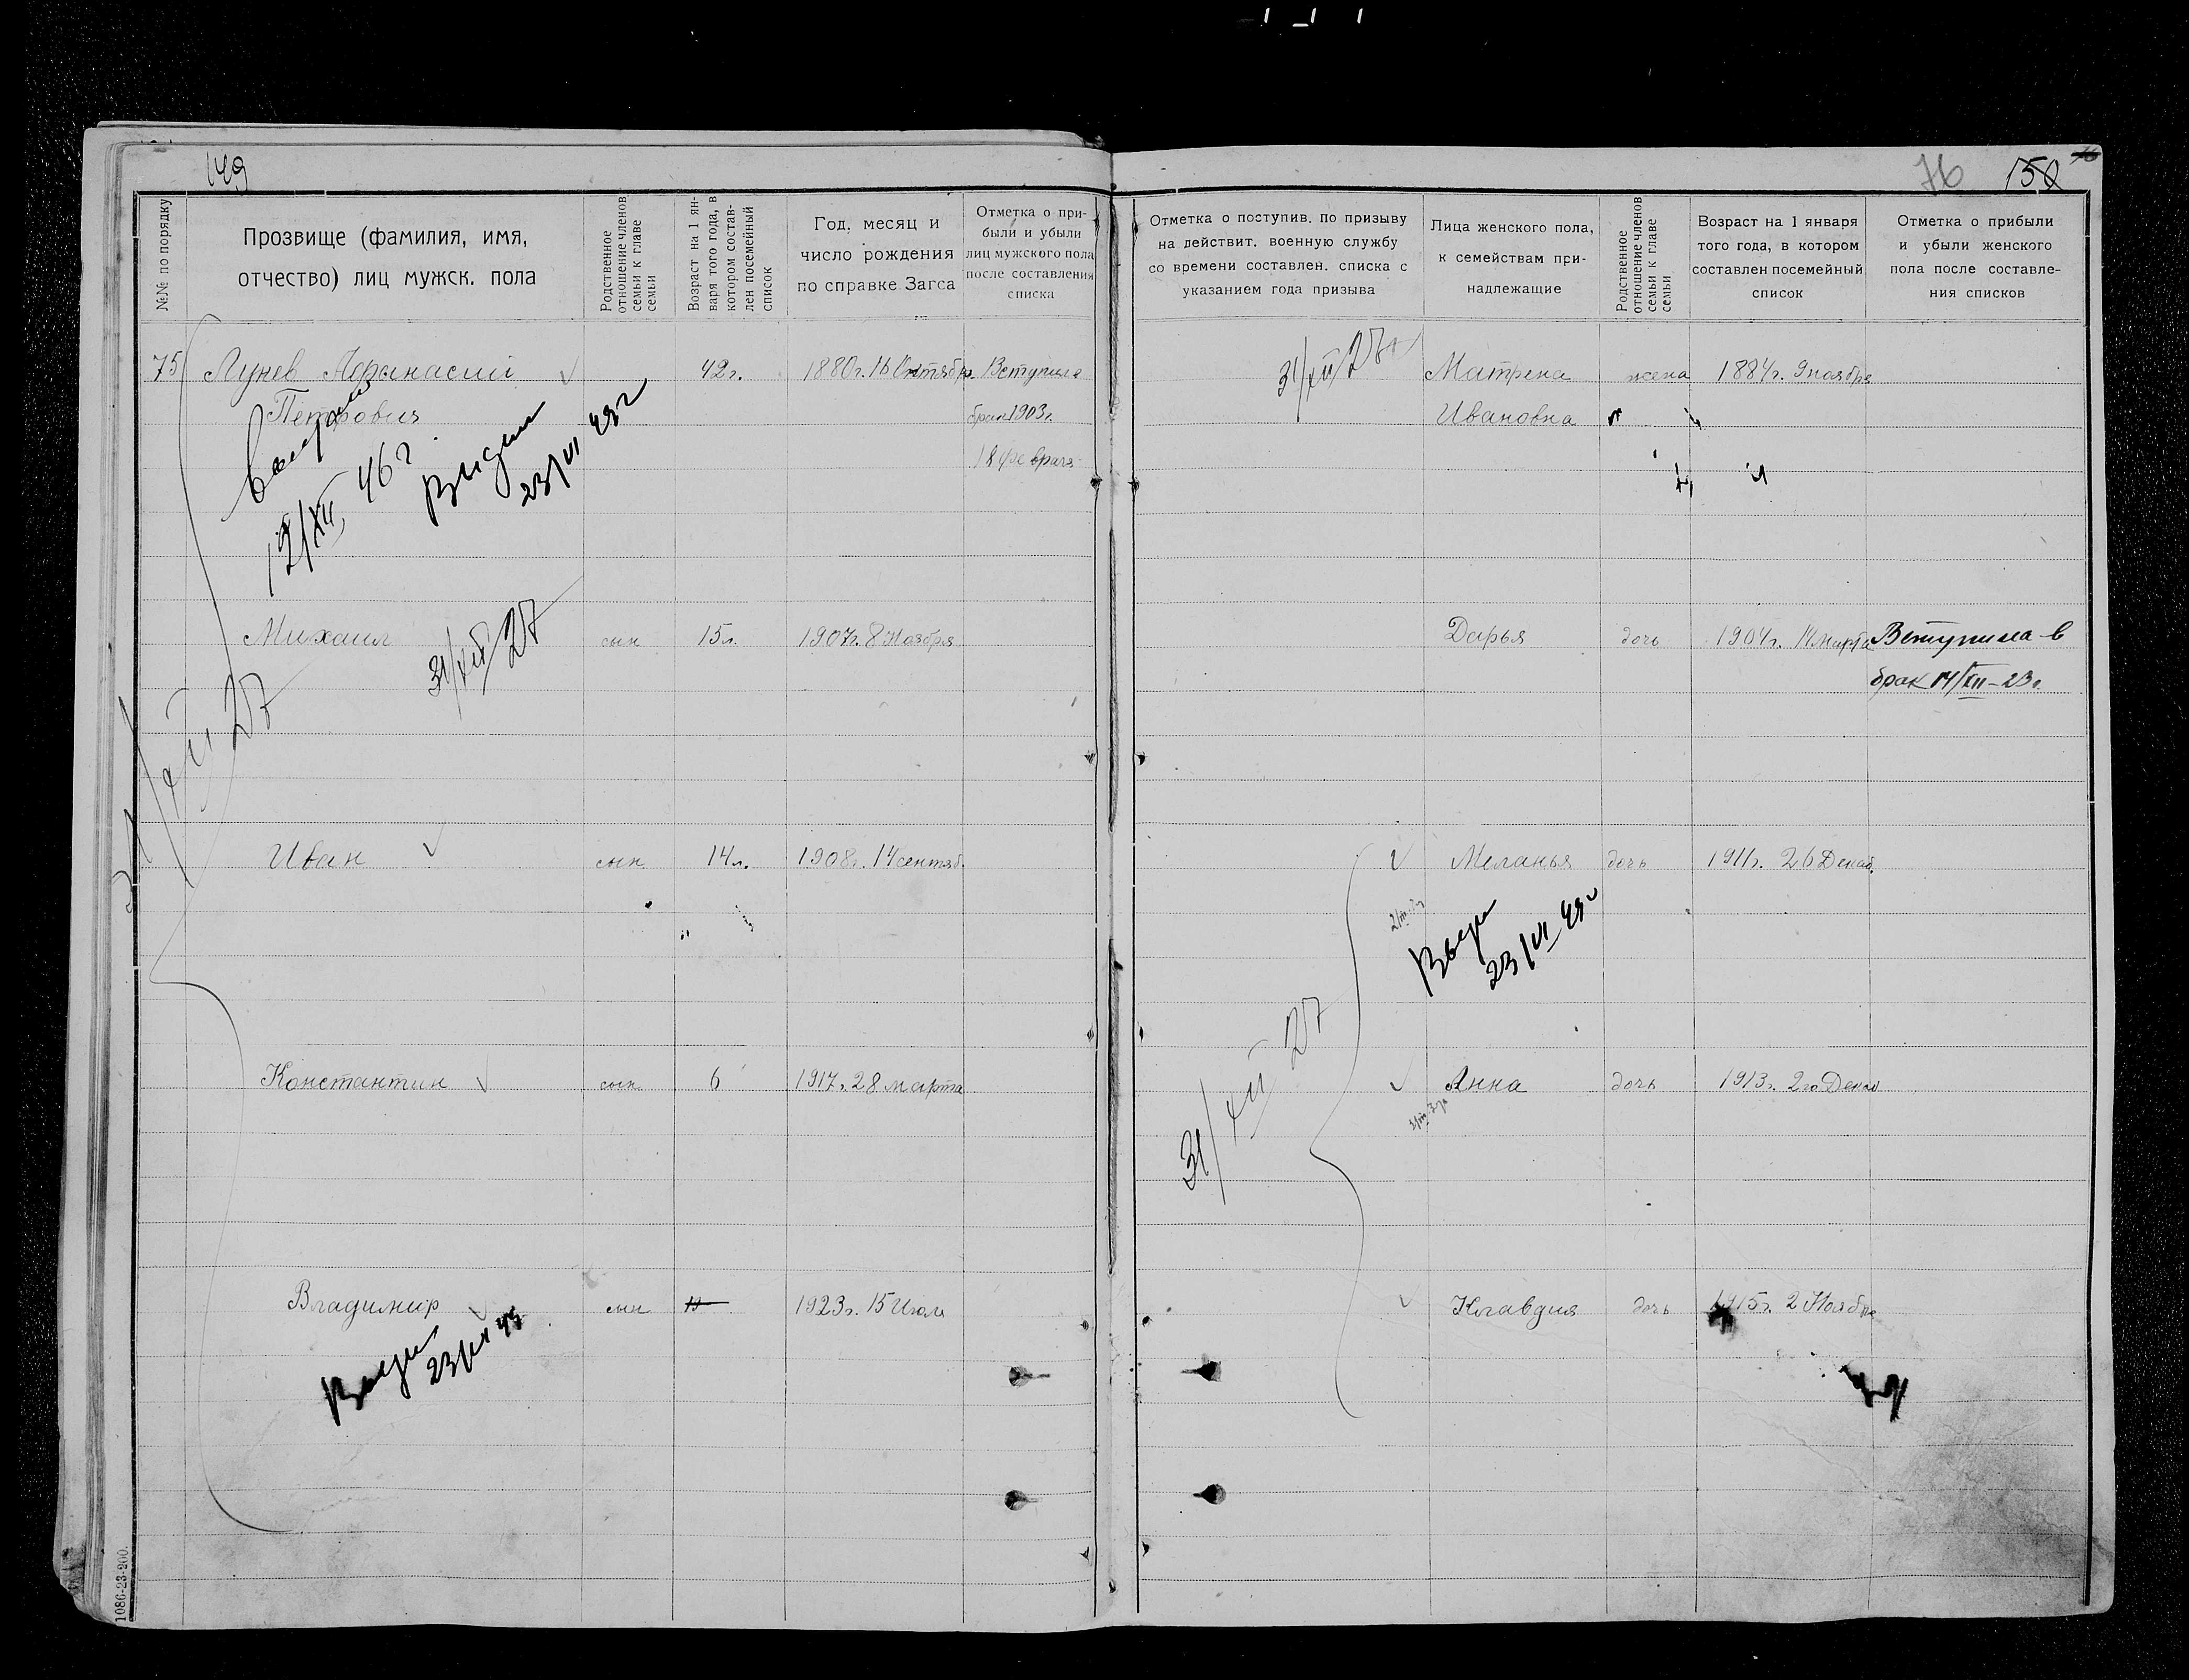 149
№№ по порядку
Прозвище (фамилия, имя,
отчество) лиц мужск. пола
Родственное
отношение членов
семьи к главе
семьи
Возраст на 1 ян-
варя того года, в
котором состав-
лен посемейный
список
Год, месяц и
число рождения
по справке Загса
Отметка о при-
были и убыли
лиц мужского пола
после составления
списка
75
Лунев Афанасий
42г.
1880г. 16 Октября
Вступил в
Петрович
брак 1903г.
18 февраля
12/XII 46 г
23/VI 49 г
Михаил
сын
15л.
1907г. 8 Ноября
31/XII 27
31/XII 27
Иван
сын
14л.
1908г. 14 сентяб.
Константин
сын
6
1917г. 28 марта
Владимир
сын
1923г. 15 Июля
23/VI 49
1086-23-200.
76
150
Отметка о поступив. по призыву
на действит. военную службу
со времени составлен. списка с
указанием года призыва
Лица женского пола,
к семействам при-
надлежащие
Родственное
отношение членов
семьи к главе
семьи
Возраст на 1 января
того года, в котором
составлен посемейный
список
Отметка о прибыли
и убыли женского
пола после составле-
ния списков
31/XII 27г
Матрена
жена
1884г. 9 ноября
Ивановна
Дарья
дочь
1904г. 14 марта
Вступила в
брак 14/XII-23г.
Меланья
дочь
1911г. 26 Декаб.
23/VI 49 г
31/XII 27
Анна
дочь
1913г. 2го Декаб
Клавдия
дочь
1915г. 2 Ноября